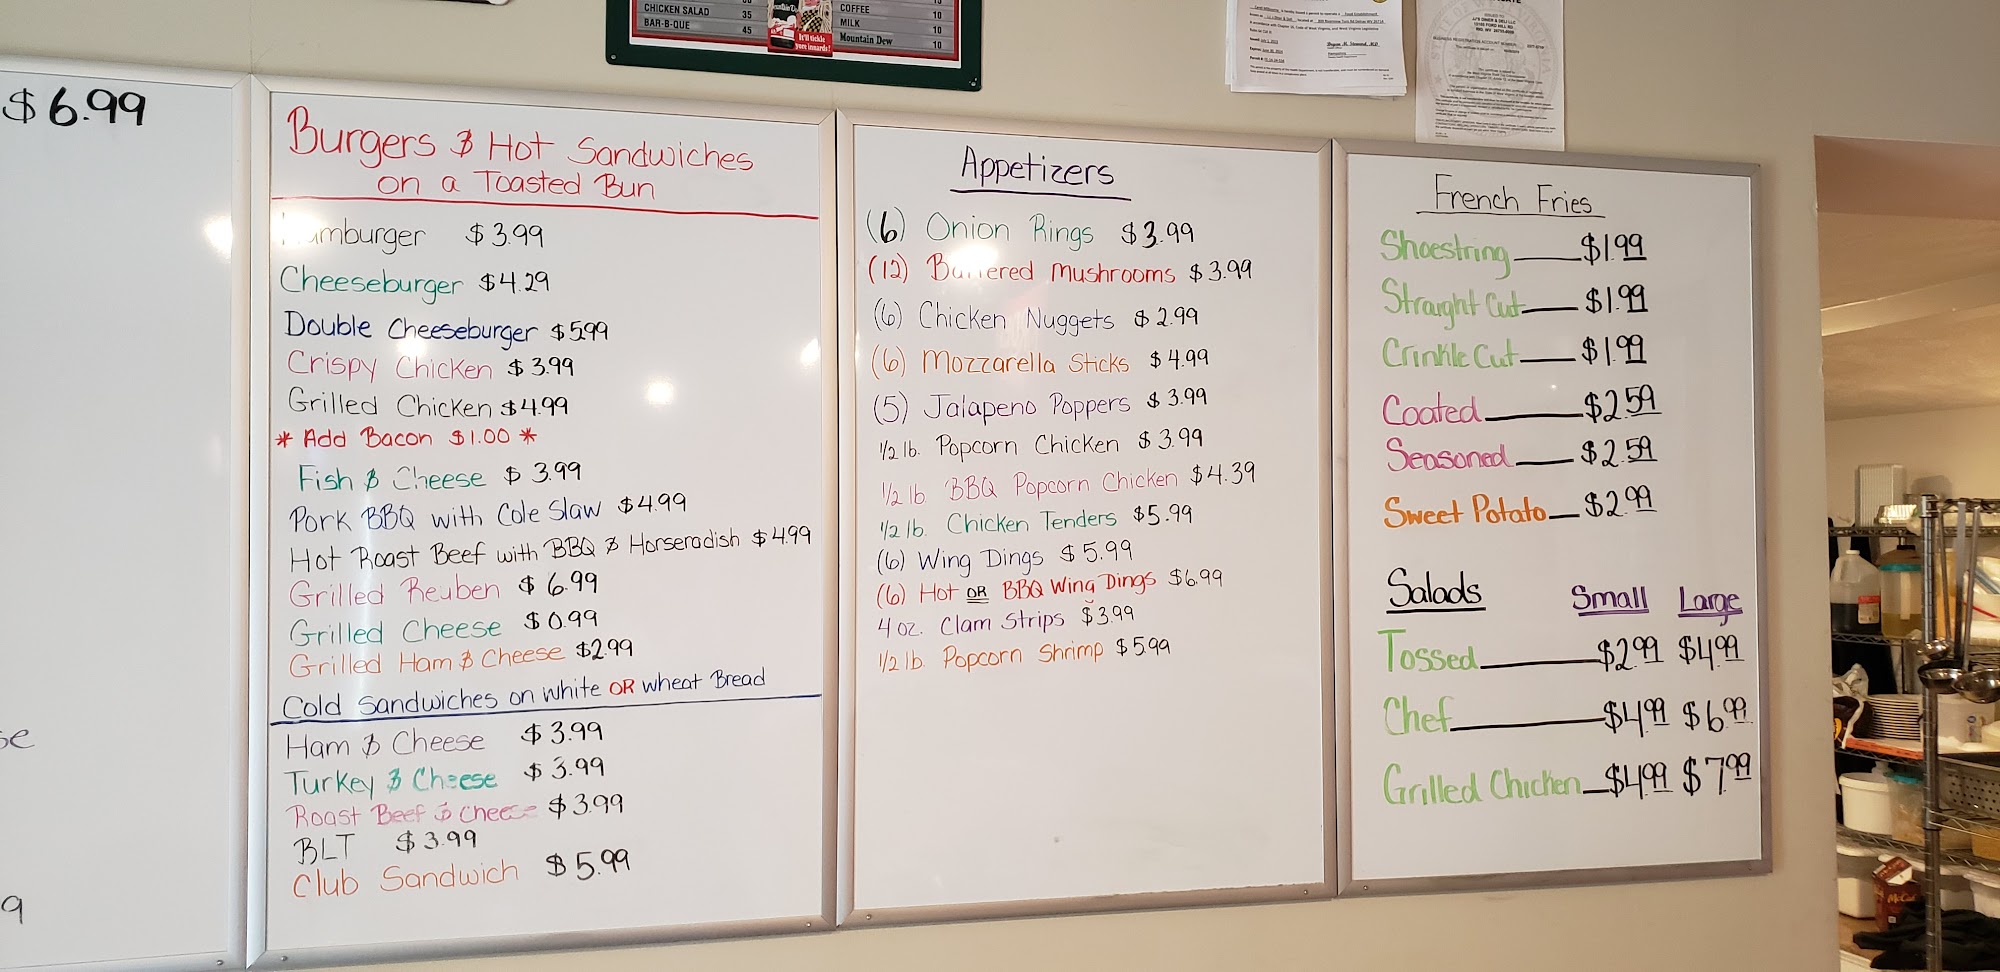 CHICKEN SALAD 35
BAR-B-QUE 45
It'll tickle
yore innards!
COFFEE 10
MILK 10
Mountain Dew 10
JJ'S DINER & DELI LLC
$6.99
Burgers & Hot Sandwiches
on a Toasted Bun
Hamburger $3.99
Cheeseburger $4.29
Double Cheeseburger $5.99
Crispy Chicken $3.99
Grilled Chicken $4.99
* Add Bacon $1.00 *
Fish & Cheese $3.99
Pork BBQ with Cole Slaw $4.99
Hot Roast Beef with BBQ & Horseradish $4.99
Grilled Reuben $6.99
Grilled Cheese $0.99
Grilled Ham & Cheese $2.99
Cold Sandwiches on white OR wheat Bread
Ham & Cheese $3.99
Turkey & Cheese $3.99
Roast Beef & Cheese $3.99
BLT $3.99
Club Sandwich $5.99
Appetizers
(6) Onion Rings $3.99
(12) Battered Mushrooms $3.99
(6) Chicken Nuggets $2.99
(6) Mozzarella Sticks $4.99
(5) Jalapeno Poppers $3.99
1/2 lb. Popcorn Chicken $3.99
1/2 lb BBQ Popcorn Chicken $4.39
1/2 lb. Chicken Tenders $5.99
(6) Wing Dings $5.99
(6) Hot OR BBQ Wing Dings $6.99
4 oz. Clam Strips $3.99
1/2 lb. Popcorn Shrimp $5.99
French Fries
Shoestring $1.99
Straight Cut $1.99
Crinkle Cut $1.99
Coated $2.59
Seasoned $2.59
Sweet Potato $2.99
Salads Small Large
Tossed $2.99 $4.99
Chef $4.99 $6.99
Grilled Chicken $4.99 $7.99